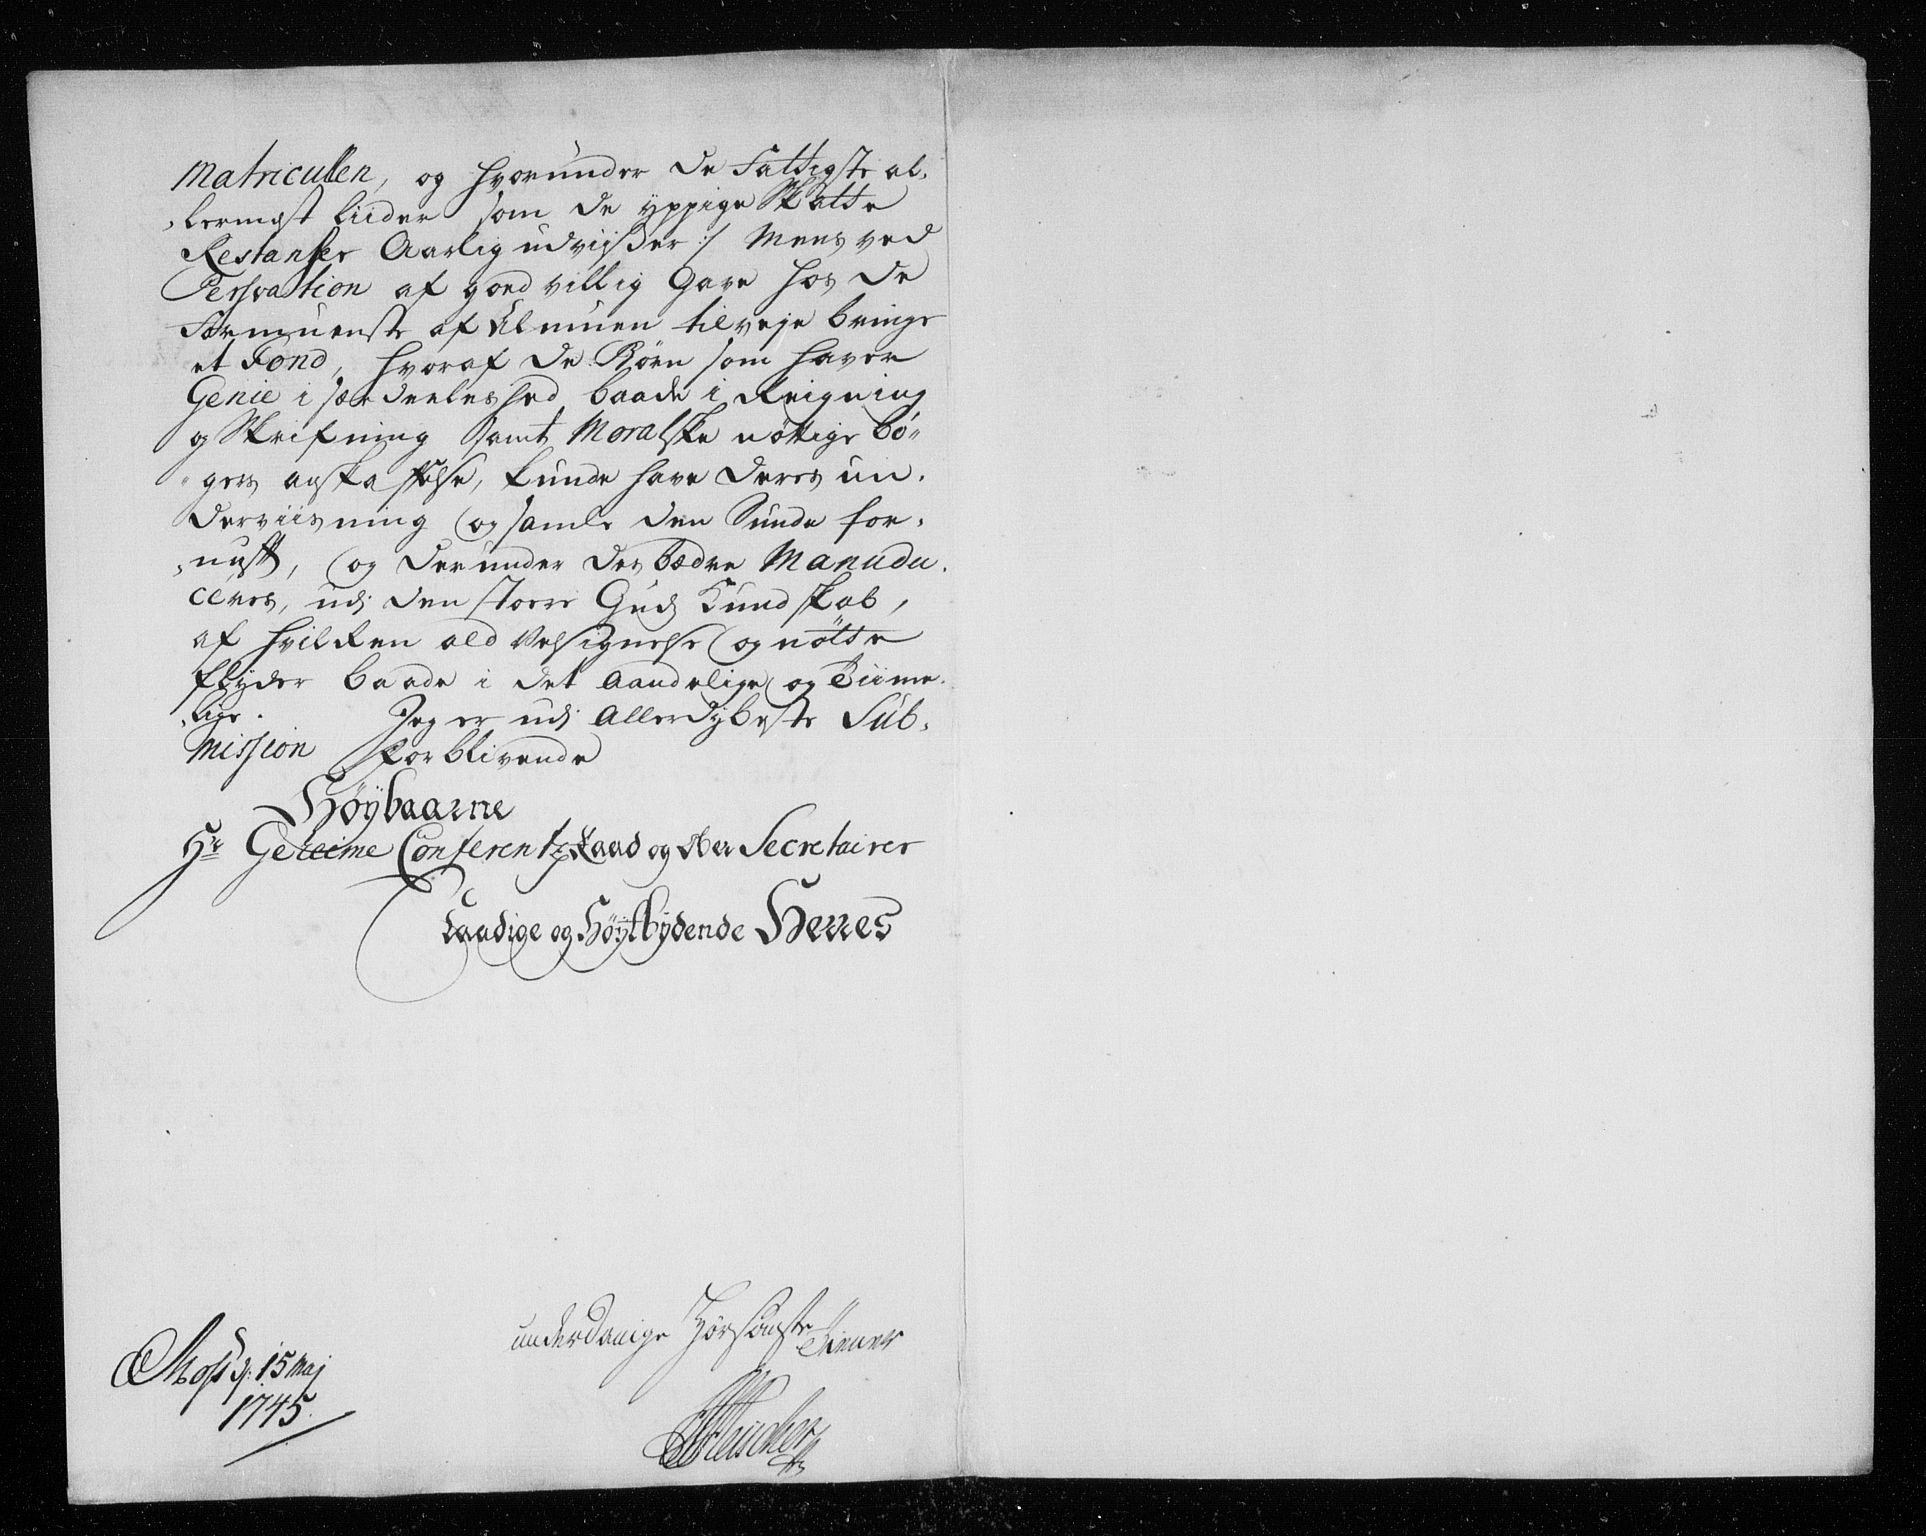 Matricullen, og hvorunder de Fattigste al,
,lermest liider som de yppige Skatte
Restantzer Aarlig udviiser :/ Mens ved
Persvation af goed villig Gave hos de
Formuenste af Almuen tilveje bringe
et Fond, hvoraf de Børn som haver
Genie i sær deeleshed baade i Reigning
og Skrifning samt Moralske nøttige bø„
„gers anskaffelse, kunde have deres un,
derviisning og samle den Sunde for,
,nuft, og derunder des bædre Manudu,
ceres, udj den stoere Guds Kundskab,
af hvilken ald Velsignelse og nøtte
flyder baade i det Aandelige og Tiime,
,lige. Jeg er udj Allerdybeste Sub,
Mission forblivende
Høybaarne
Hr Geheime Conferentz Raad og Ober Secretairer
Naadige og Høytbydende Herres
underdanige Hørsomste Tienner
Moss d: 15 Maj
1745.